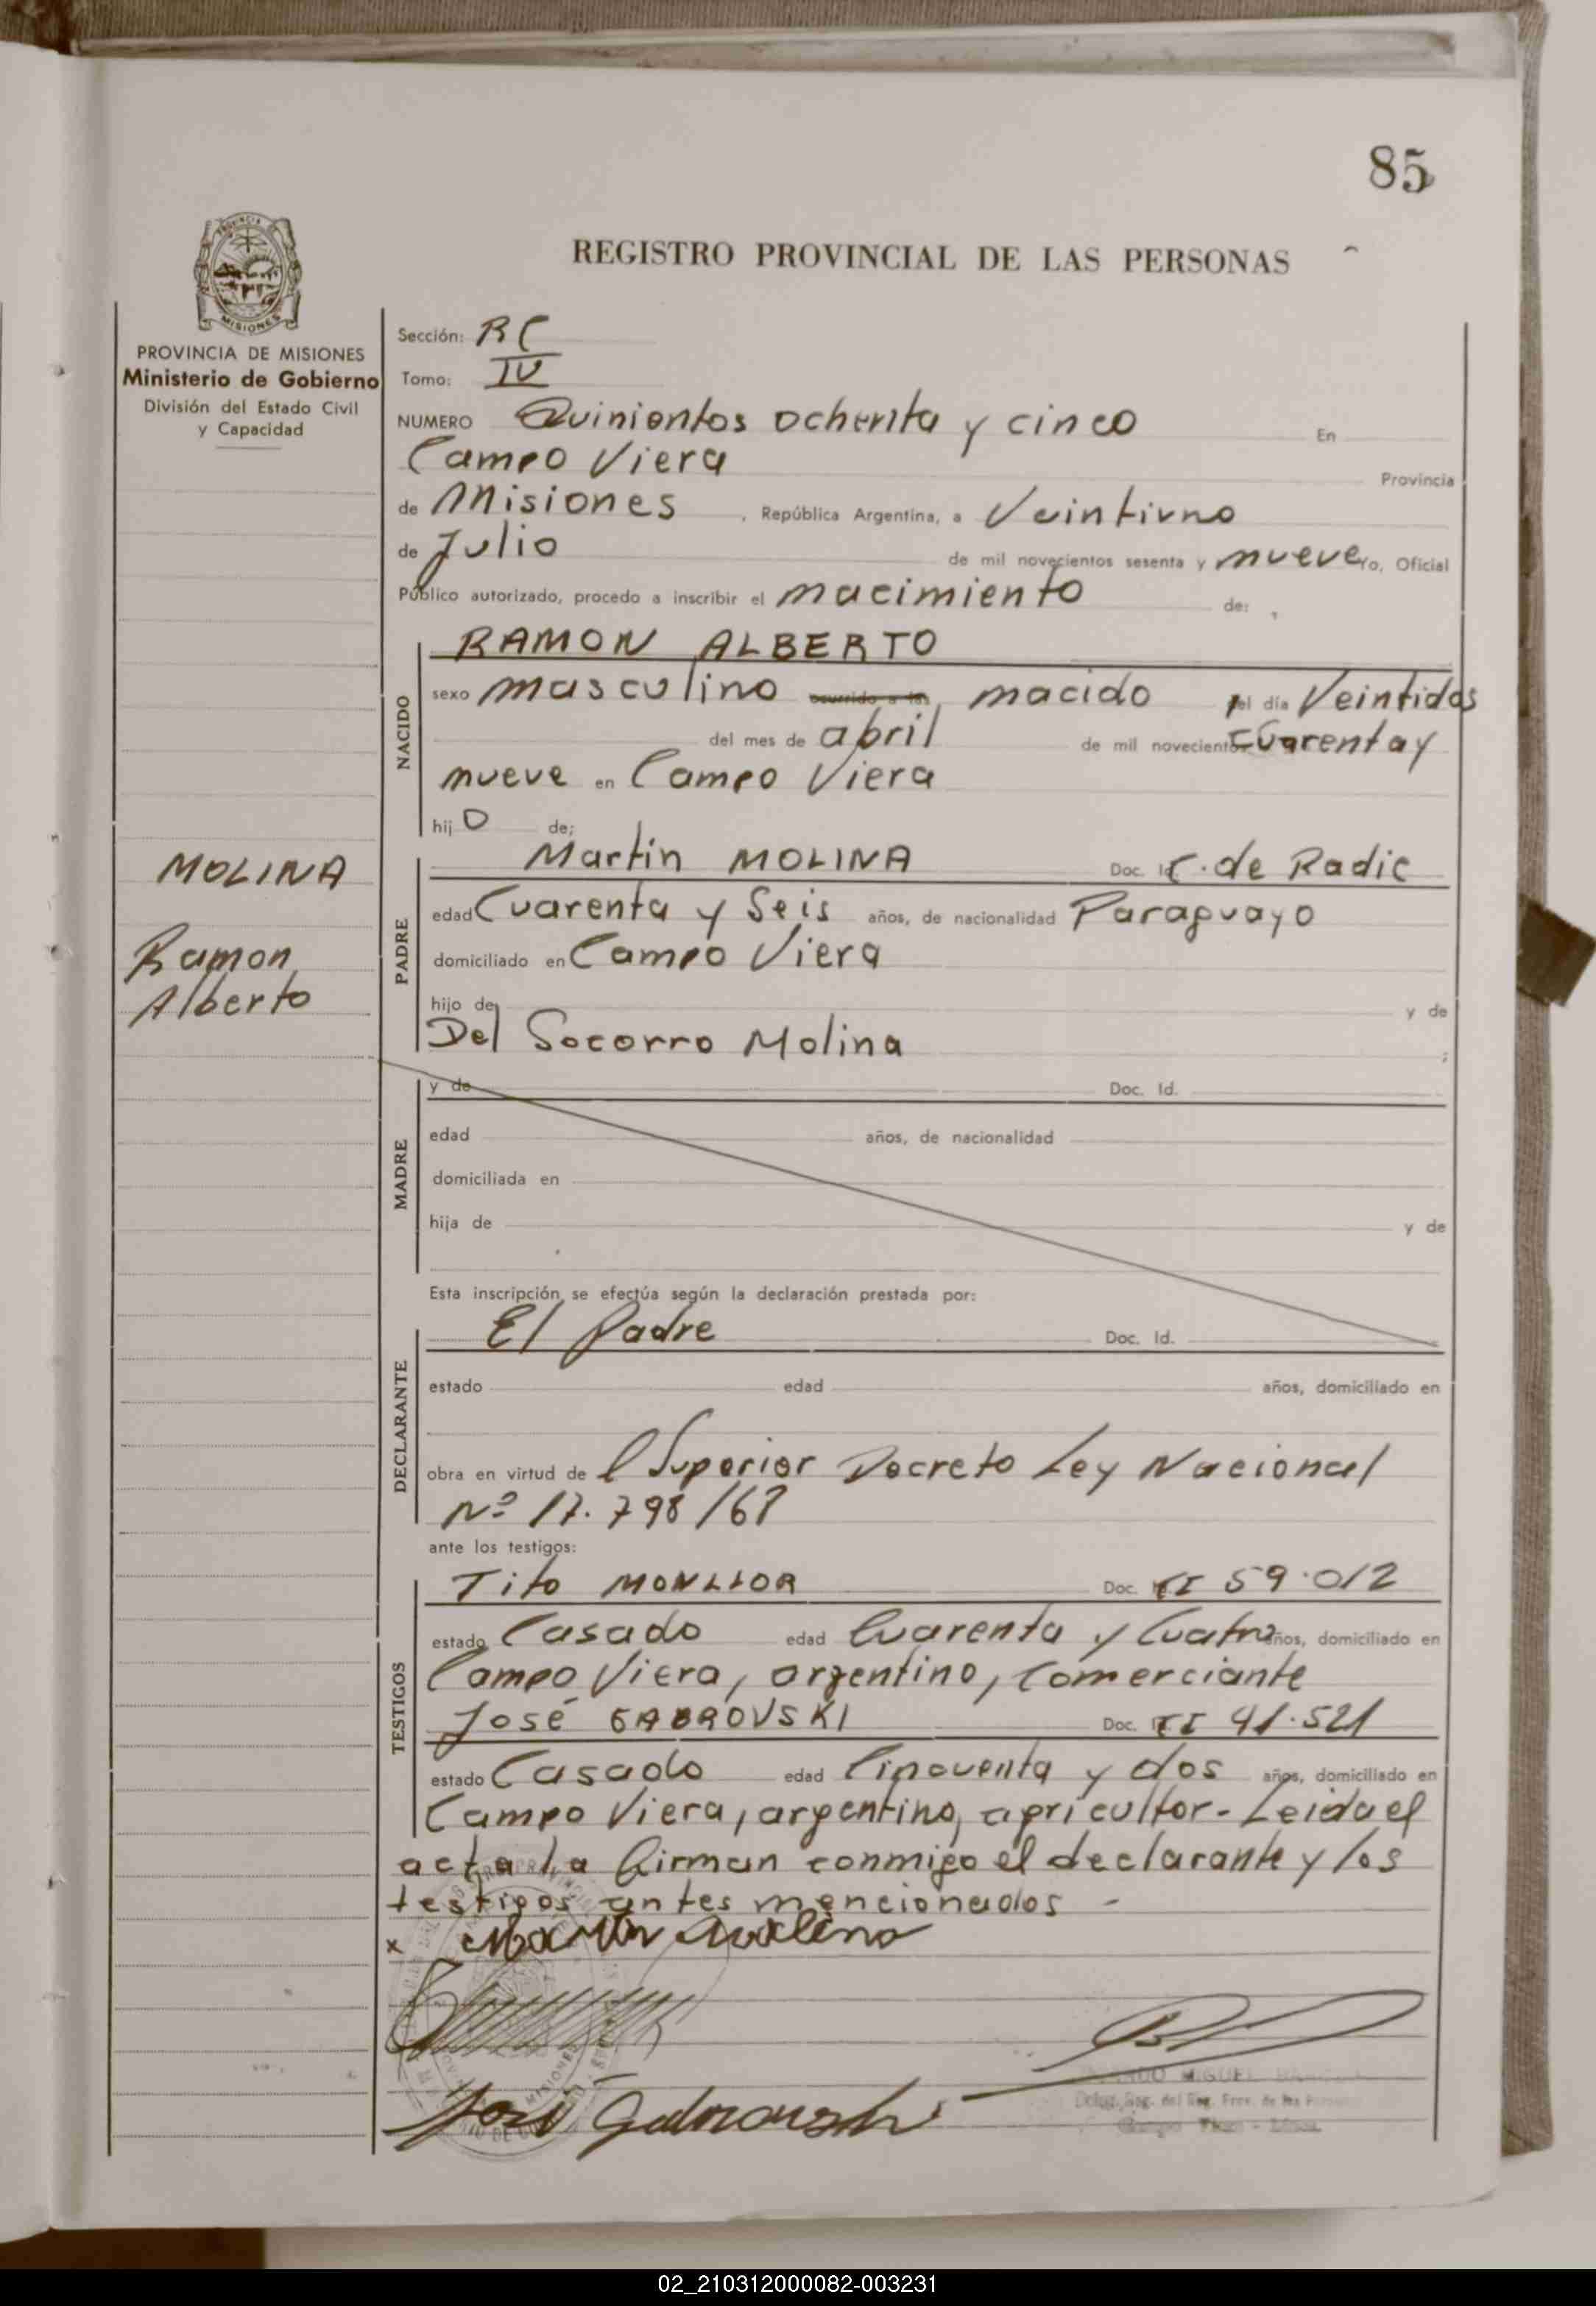 85
REGISTRO PROVINCIAL DE LAS PERSONAS
PROVINCIA DE MISIONES
Ministerio de Gobierno
División del Estado Civil
y Capacidad
Sección: RC
Tomo: IV
NUMERO Quinientos ochenta y cinco En
Campo Viera Provincia
de Misiones, República Argentina, a Veintiuno
de Julio de mil novecientos sesenta y nueve yo, Oficial
Público autorizado, procedo a inscribir el nacimiento de:
NACIDO
RAMON ALBERTO
sexo masculino ocurrido a las nacido el día Veintidos
del mes de abril de mil novecientos Cuarenta y
nueve en Campo Viera
hijo de;
MOLINA
Ramon
Alberto
PADRE
Martin MOLINA Doc. Id. C. de Radic
edad Cuarenta y Seis años, de nacionalidad Paraguayo
domiciliado en Campo Viera
hijo de y de
Del Socorro Molina ;
MADRE
y de Doc. Id.
edad años, de nacionalidad
domiciliada en
hija de y de
Esta inscripción se efectúa según la declaración prestada por:
DECLARANTE
El Padre Doc. Id.
estado edad años, domiciliado en
obra en virtud de l Superior Decreto Ley Nacional
Nº 17.798/68
ante los testigos:
TESTIGOS
Tito MONLLOR Doc. CI 59.012
estado Casado edad Cuarenta y Cuatro años, domiciliado en
Campo Viera, argentino, Comerciante
José GABROVSKI Doc. CI 41.521
estado Casado edad Cincuenta y dos años, domiciliado en
Campo Viera, argentino, agricultor- Leida el
acta la firman conmigo el declarante y los
testigos antes mencionados -
x Martin Molina
José Gabrovski
MIGUEL
Deleg. Reg. del Reg. Prov. de las
02_210312000082-003231